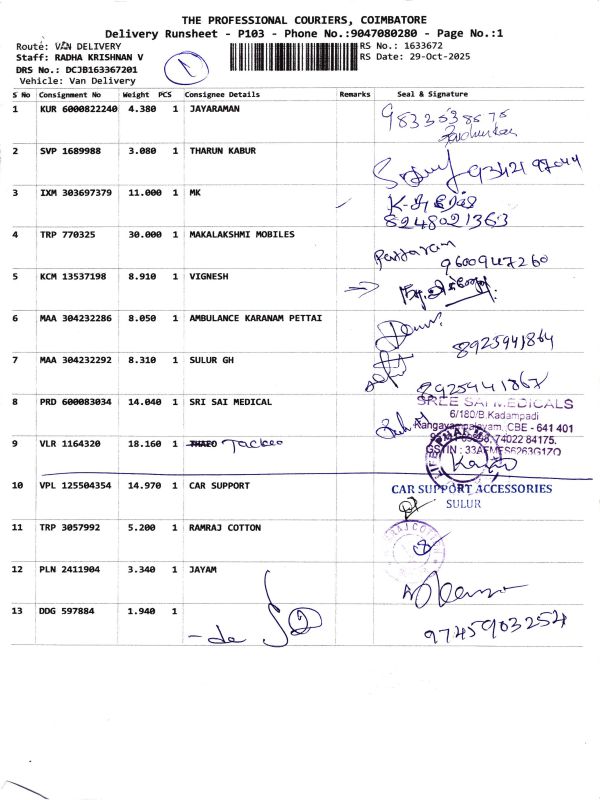 THE PROFESSIONAL COURIERS, COIMBATORE
Delivery Runsheet - P103 - Phone No.:9047080280 - Page No.:1
Route: VAN DELIVERY
RS No.: 1633672
Staff: RADHA KRISHNAN V
RS Date: 29-Oct-2025
DRS No.: DCJB163367201
1
Vehicle: Van Delivery
S No Consignment No Weight PCS Consignee Details Remarks Seal & Signature
1 KUR 6000822240 4.380 1 JAYARAMAN
2 SVP 1689988 3.080 1 THARUN KABUR
3 IXM 303697379 11.000 1 MK
8248021363
4 TRP 770325 30.000 1 MAKALAKSHMI MOBILES
9600947260
5 KCM 13537198 8.910 1 VIGNESH
6 MAA 304232286 8.050 1 AMBULANCE KARANAM PETTAI
8925941864
7 MAA 304232292 8.310 1 SULUR GH
8925941867
8 PRD 600083034 14.040 1 SRI SAI MEDICAL
SREE SAI MEDICALS
6/180/B.Kadampadi
Rangayampalayam, CBE - 641 401
74022 84175.
GSTIN : 33AFMFS6263G1ZO
9 VLR 1164320 18.160 1 THAEO Tackeo
10 VPL 125504354 14.970 1 CAR SUPPORT
CAR SUPPORT ACCESSORIES
SULUR
11 TRP 3057992 5.200 1 RAMRAJ COTTON
12 PLN 2411904 3.340 1 JAYAM
13 DDG 597884 1.940 1
9745903254